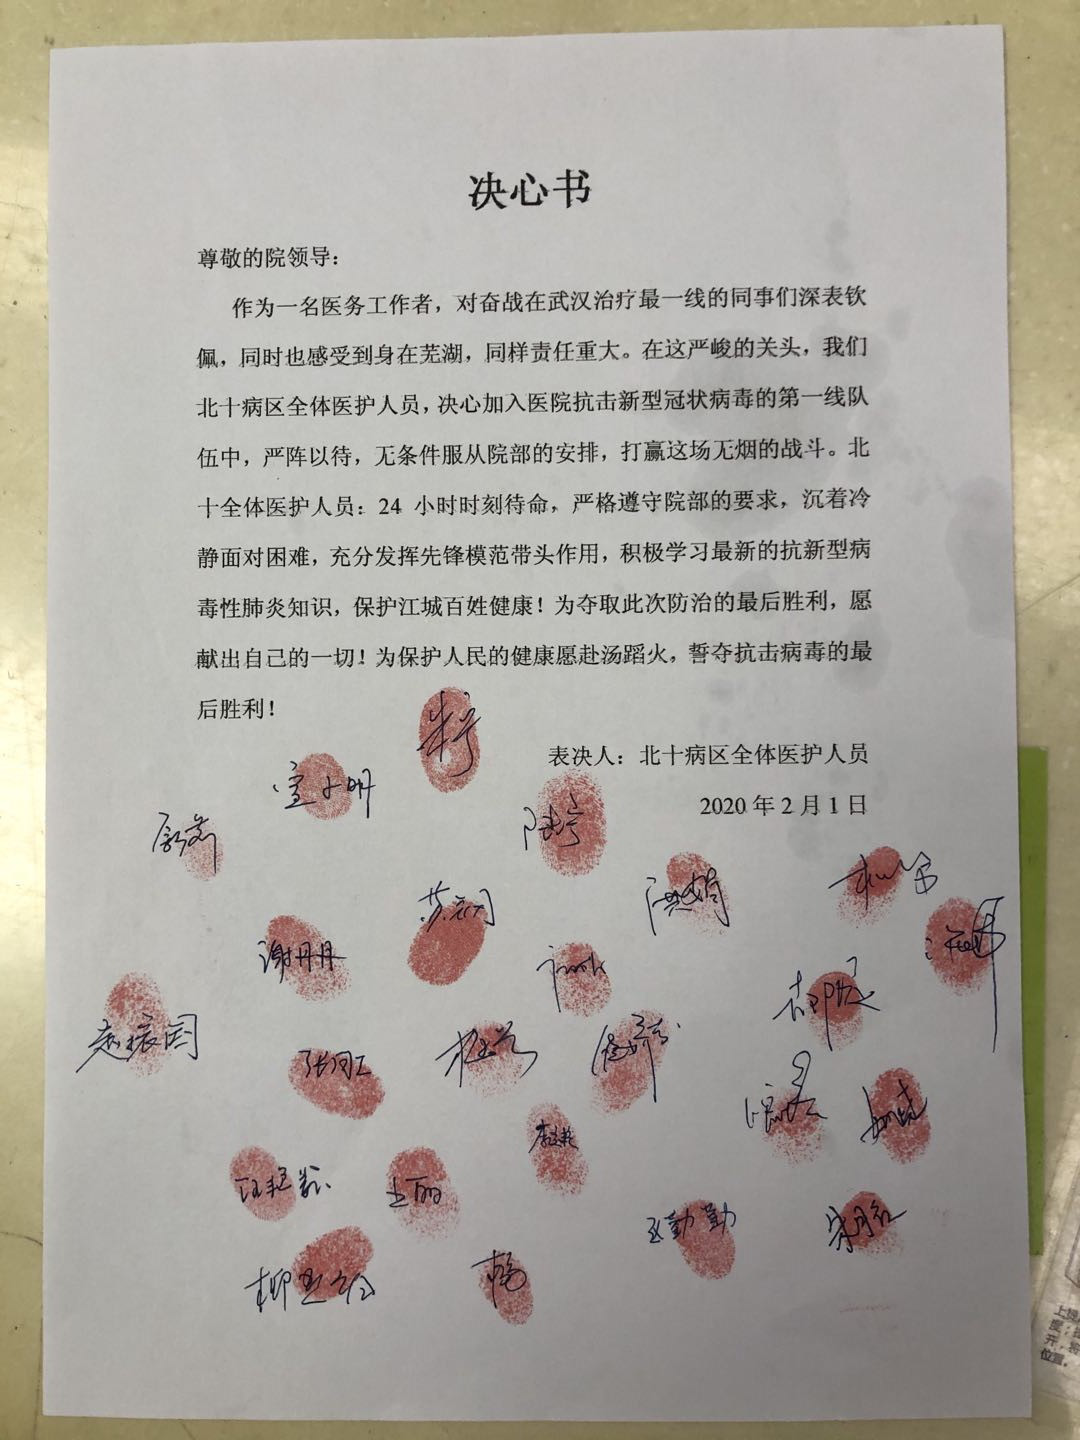 决心书
尊敬的院领导：
作为一名医务工作者，对奋战在武汉治疗最一线的同事们深表钦
佩，同时也感受到身在芜湖，同样责任重大。在这严峻的关头，我们
北十病区全体医护人员，决心加入医院抗击新型冠状病毒的第一线队
伍中，严阵以待，无条件服从院部的安排，打赢这场无烟的战斗。北
十全体医护人员：24 小时时刻待命，严格遵守院部的要求，沉着冷
静面对困难，充分发挥先锋模范带头作用，积极学习最新的抗新型病
毒性肺炎知识，保护江城百姓健康！为夺取此次防治的最后胜利，愿
献出自己的一切！为保护人民的健康愿赴汤蹈火，誓夺抗击病毒的最
后胜利！
表决人：北十病区全体医护人员
2020 年 2 月 1 日
谢丹丹
赵振国
王丽
王勤勤
位置。